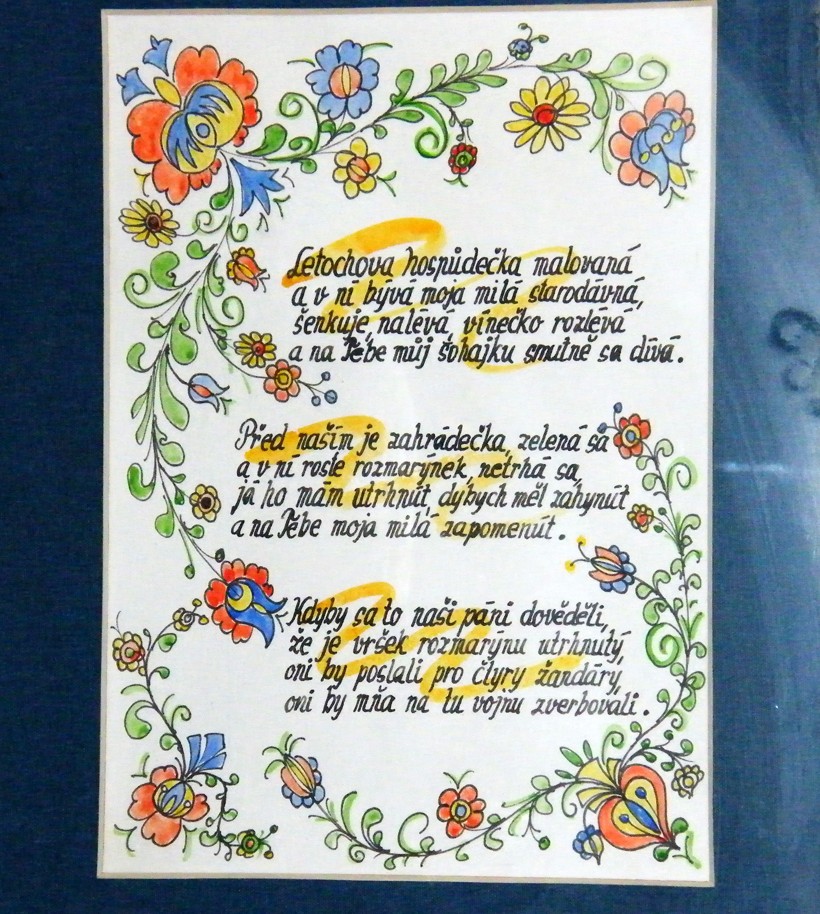 Letochova hospůdečka malovaná
a v ní bývá moja milá starodávná,
šenkuje, nalévá, vínečko rozlévá
a na Tebe můj šohajku smutně sa dívá.
Před naším je zahrádečka, zelená sa
a v ní roste rozmarýnek, netrhá sa,
já ho mám utrhnút, dybych měl zahynút
a na Tebe moja milá zapomenút.
Kdyby sa to naši páni dověděli,
že je vršek rozmarýnu utrhnutý,
oni by poslali pro čtyry žandáry,
oni by mňa na tu vojnu zverbovali.